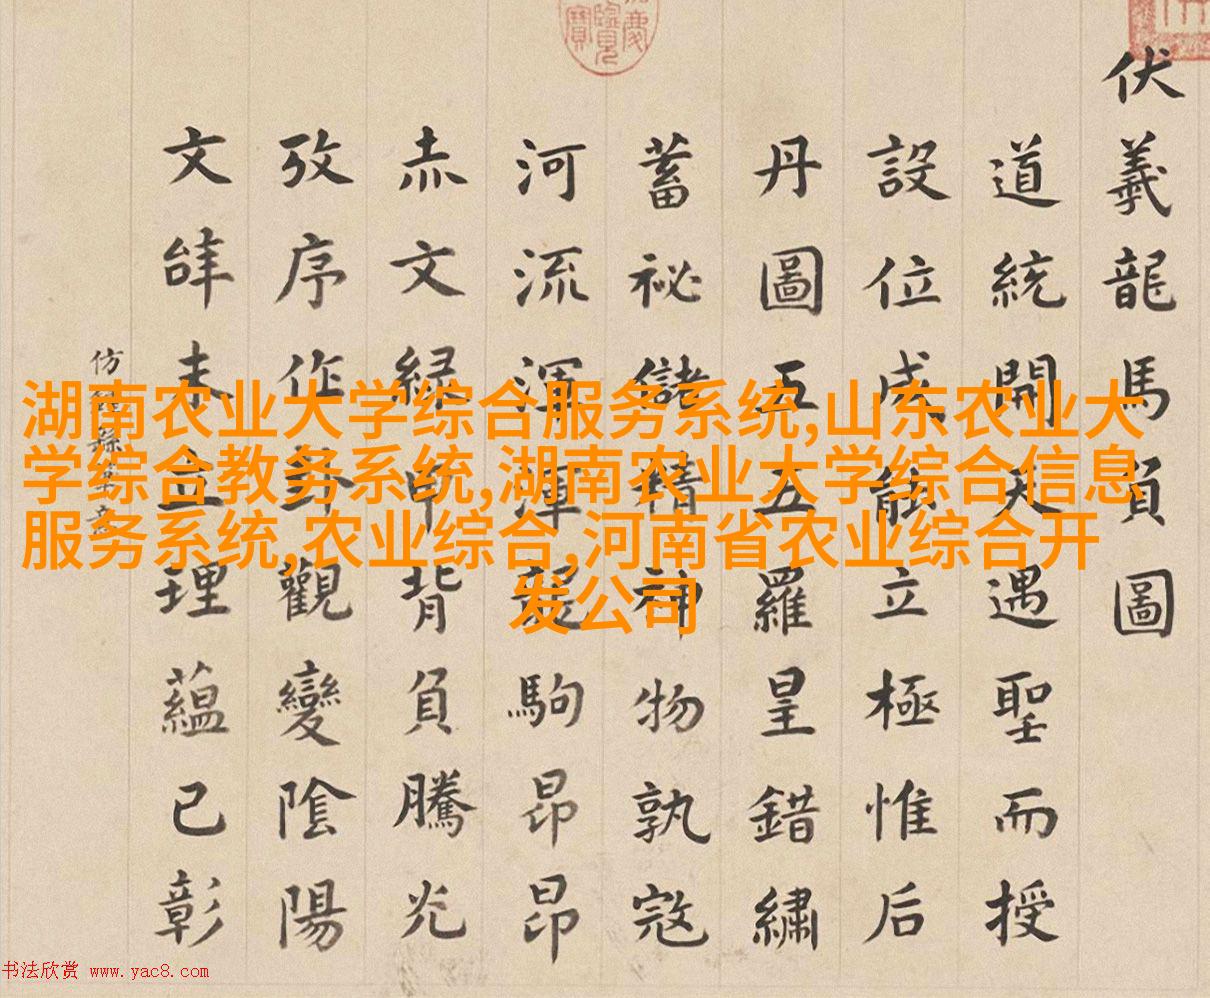 伏羲龍馬負圖
道統開天遇聖而授
設位成能立極惟后
丹圖五五羅皇錯繡
蓄祕儲精神物孰寇
河流渾渾駒昂昂
赤文緑甲背負騰光
攷序作卦觀變陰陽
文未立理蘊已彰
仿
慶覽寶
湖南农业大学综合服务系统,山东农业大
学综合教务系统,湖南农业大学综合信息
服务系统,农业综合,河南省农业综合开
发公司
书法欣赏 www.yac8.com